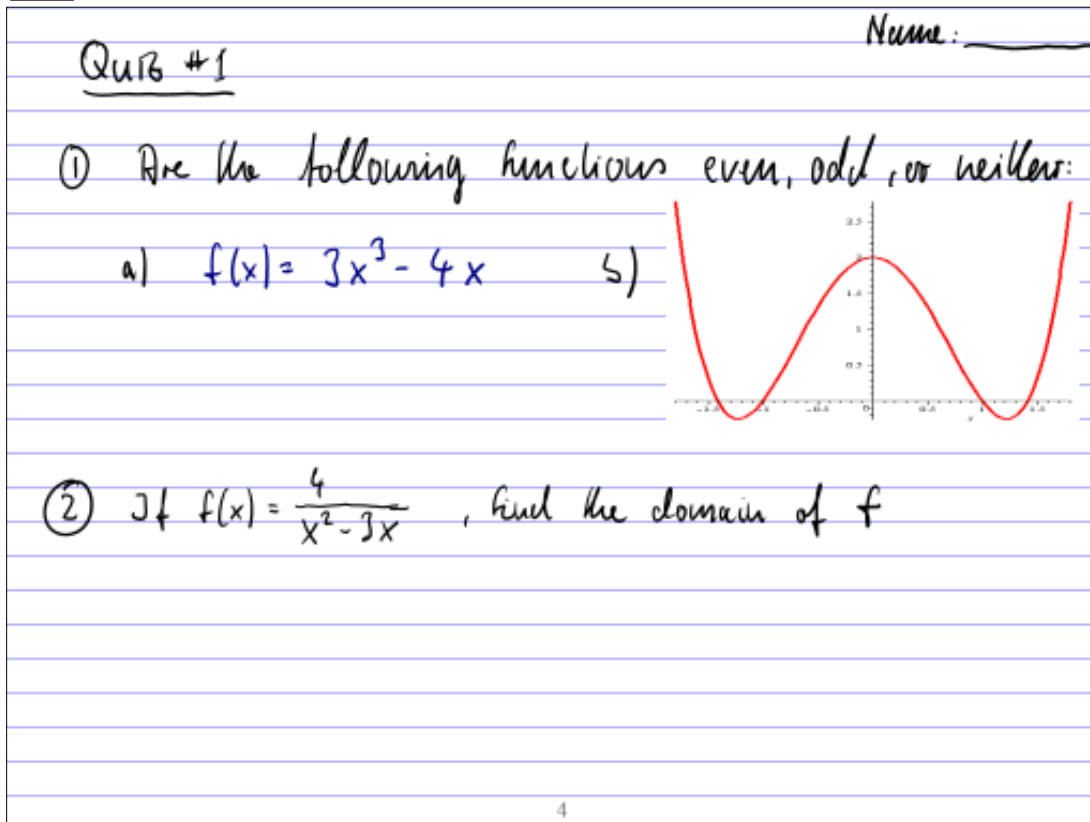 Name:
Quiz #1
① Are the following functions even, odd, or neither:
a) f(x) = 3x³ - 4x b)
2.5
2
1.5
1
0.5
-1.5 -1 -0.5 0 0.5 1 1.5
x
② If f(x) = 4/(x² - 3x) , find the domain of f
4